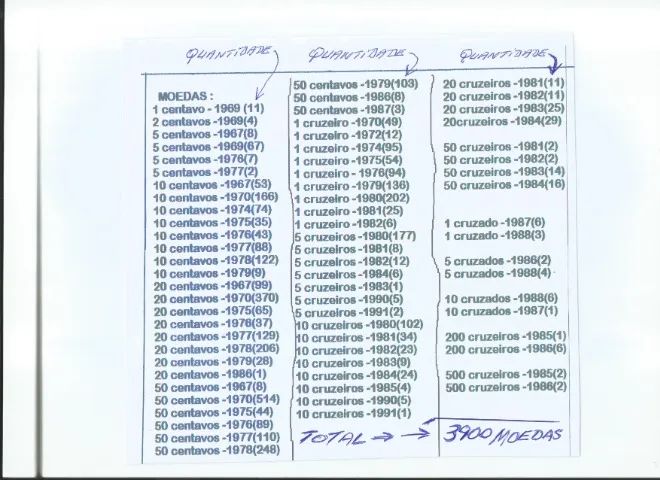 QUANTIDADE
MOEDAS :
1 centavo - 1969 (11)
2 centavos -1969(4)
5 centavos -1967(8)
5 centavos -1969(67)
5 centavos -1976(7)
5 centavos -1977(2)
10 centavos -1967(53)
10 centavos -1970(166)
10 centavos -1974(74)
10 centavos -1975(35)
10 centavos -1976(43)
10 centavos -1977(88)
10 centavos -1978(122)
10 centavos -1979(9)
20 centavos -1967(99)
20 centavos -1970(370)
20 centavos -1975(65)
20 centavos -1976(37)
20 centavos -1977(129)
20 centavos -1978(206)
20 centavos -1979(28)
20 centavos -1986(1)
50 centavos -1967(8)
50 centavos -1970(514)
50 centavos -1975(44)
50 centavos -1976(89)
50 centavos -1977(110)
50 centavos -1978(248)
QUANTIDADE
50 centavos -1979(103)
50 centavos -1986(8)
50 centavos -1987(3)
1 cruzeiro -1970(49)
1 cruzeiro -1972(12)
1 cruzeiro -1974(95)
1 cruzeiro -1975(54)
1 cruzeiro - 1976(94)
1 cruzeiro -1979(136)
1 cruzeiro -1980(202)
1 cruzeiro -1981(25)
1 cruzeiro -1982(6)
5 cruzeiros -1980(177)
5 cruzeiros -1981(8)
5 cruzeiros -1982(12)
5 cruzeiros -1984(6)
5 cruzeiros -1983(1)
5 cruzeiros -1990(5)
5 cruzeiros -1991(2)
10 cruzeiros -1980(102)
10 cruzeiros -1981(34)
10 cruzeiros -1982(23)
10 cruzeiros -1983(9)
10 cruzeiros -1984(24)
10 cruzeiros -1985(4)
10 cruzeiros -1990(5)
10 cruzeiros -1991(1)
QUANTIDADE
20 cruzeiros -1981(11)
20 cruzeiros -1982(11)
20 cruzeiros -1983(25)
20cruzeiros -1984(29)
50 cruzeiros -1981(2)
50 cruzeiros -1982(2)
50 cruzeiros -1983(14)
50 cruzeiros -1984(16)
1 cruzado -1987(6)
1 cruzado -1988(3)
5 cruzados -1986(2)
5 cruzados -1988(4)
10 cruzados -1988(6)
10 cruzados -1987(1)
200 cruzeiros -1985(1)
200 cruzeiros -1986(6)
500 cruzeiros -1985(2)
500 cruzeiros -1986(2)
TOTAL → → 3900 MOEDAS